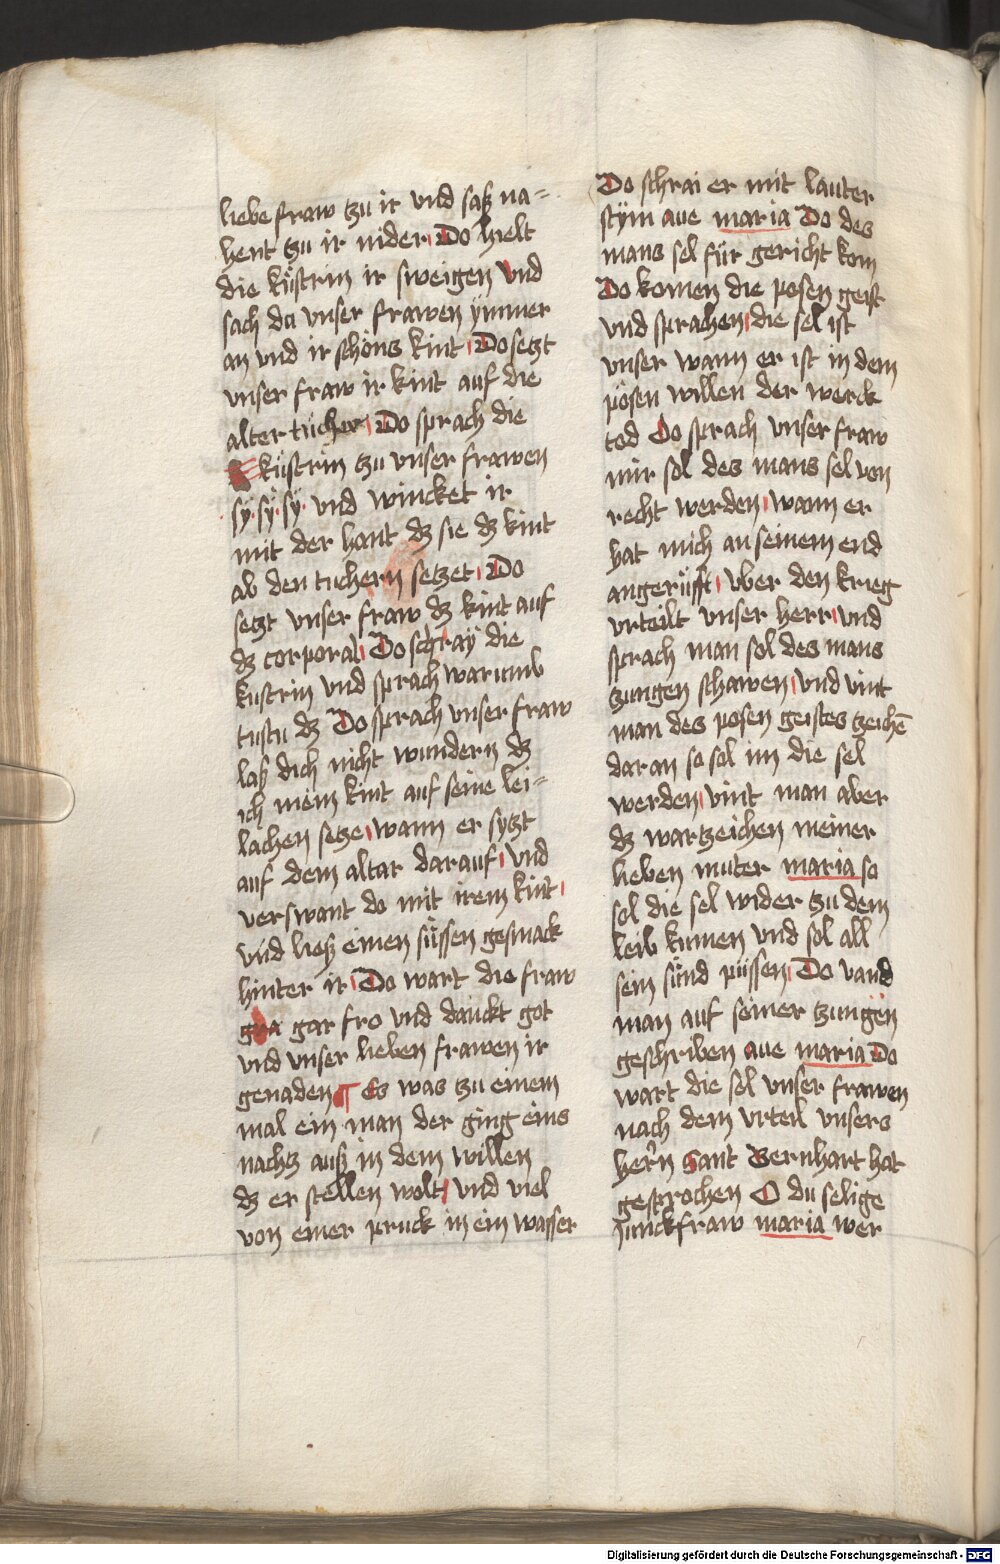 liebe fraw tzu ir vnd saß na=
hent tzu ir nider Do hielt
die küstrin ir sweigen vnd
sach da vnser frawen ymmer
an vnd ir schöns kint Do setzt
vnser fraw ir kint auf die
alter tücher Do sprach die
küstrin tzu vnser frawen
sÿ sÿ sÿ vnd wincket ir
mit der hant dz sie dz kint
ab den tuchern setzet Do
setzt vnser fraw dz kint auf
dz corporal Do schray die
kustrin vnd sprach warumb
tustu dz Do sprach vnser fraw
laß dich nicht wundern dz
ich mein kint auf seine lei=
lachen setze wann er sytzt
auf dem altar darauf vnd
verswant do mit irem kint
vnd ließ einen süssen gesmack
hinter ir Do wart die fraw
gar fro vnd danckt got
vnd vnser lieben frawen ir
genaden ¶ Es was tzu einem
mal ein man der ging eins
nachtz auß in dem willen
dz er stellen wolt vnd viel
von einer pruck in ein wasser
Do schrai er mit lauter
stÿm aue maria Do des
mans sel für gericht kom
Do komen die posen geist
vnd sprachen die sel ist
vnser wann er ist in dem
pösen willen der werck
tod Do sprach vnser fraw
mir sol des mans sel von
recht werden wann er
hat mich an seinem end
angerüfft vber den krieg
vrteilt vnser herr vnd
sprach man sol des mans
zungen schawen vnd vint
man des posen geistes tzeichē
daran so sol im die sel
werden vint man aber
dz wartzeichen meiner
lieben muter maria so
sol die sel wider tzu dem
leib kumen vnd sol all
sein sünd püssen Do vand
man auf seiner tzungen
geschriben aue maria Do
wart die sel vnser frawen
nach dem vrteil vnsers
hern Sant Bernhart hat
gesprochen O du selige
Junckfraw maria wer
Digitalisierung gefördert durch die Deutsche Forschungsgemeinschaft - DFG